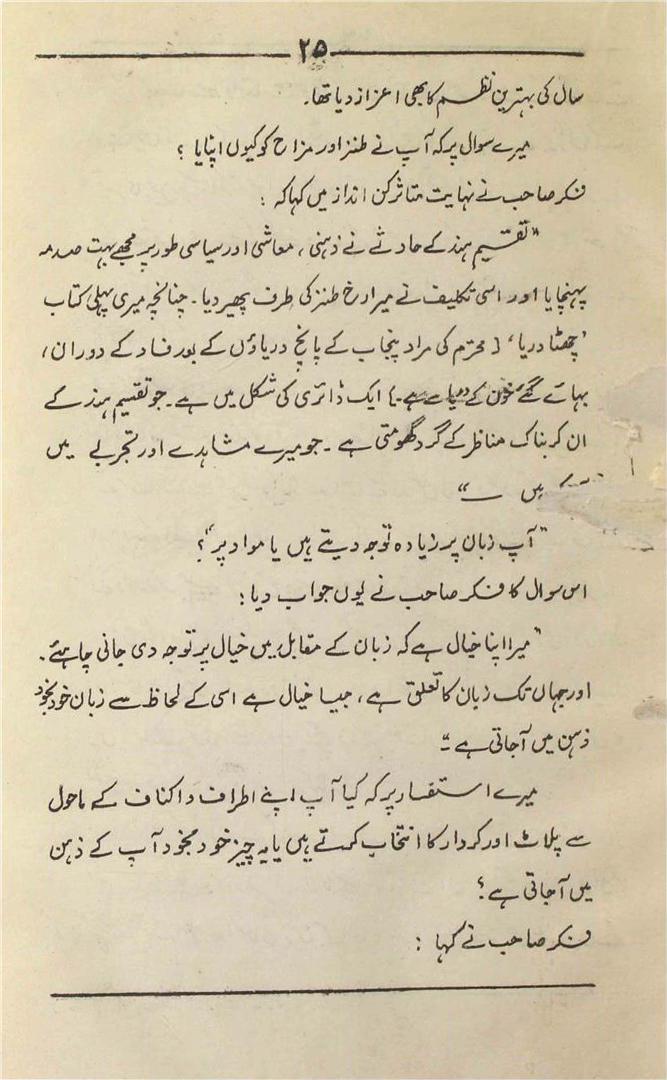 ۲۵
سال کی بہترین نظم کا بھی اعزاز دیا تھا۔
میرے سوال پر کہ آپ نے طنز اور مزاح کو کیوں اپنایا ؟
فکر صاحب نے نہایت متاثر کن انداز میں کہا کہ :
"تقسیم ہند کے حادثے نے ذہنی، معاشی اور سیاسی طور پر مجھے بہت صدمہ
پہنچایا اور اسی تکلیف نے میرا رخ طنز کی طرف پھیر دیا۔ چنانچہ میری پہلی کتاب
'چھٹا دریا' [ محترم کی مراد پنجاب کے پانچ دریاؤں کے بعد فساد کے دوران،
بہائے گئے خون کے دریا سے ہے۔] ایک ڈائری کی شکل میں ہے۔ جو تقسیم ہند کے
ان کربناک مناظر کے گرد گھومتی ہے۔ جو میرے مشاہدے اور تجربے میں
ہیں ــ"
"آپ زبان پر زیادہ توجہ دیتے ہیں یا مواد پر"؟
اس سوال کا فکر صاحب نے یوں جواب دیا :
"میرا اپنا خیال ہے کہ زبان کے مقابل میں خیال پر توجہ دی جانی چاہئے۔
اور جہاں تک زبان کا تعلق ہے، جیسا خیال ہے اسی کے لحاظ سے زبان خودبخود
ذہن میں آجاتی ہے۔"
میرے استفسار پر کہ کیا آپ اپنے اطراف و اکناف کے ماحول
سے پلاٹ اور کردار کا انتخاب کرتے ہیں یا یہ چیز خود بخود آپ کے ذہن
میں آجاتی ہے؟
فکر صاحب نے کہا :